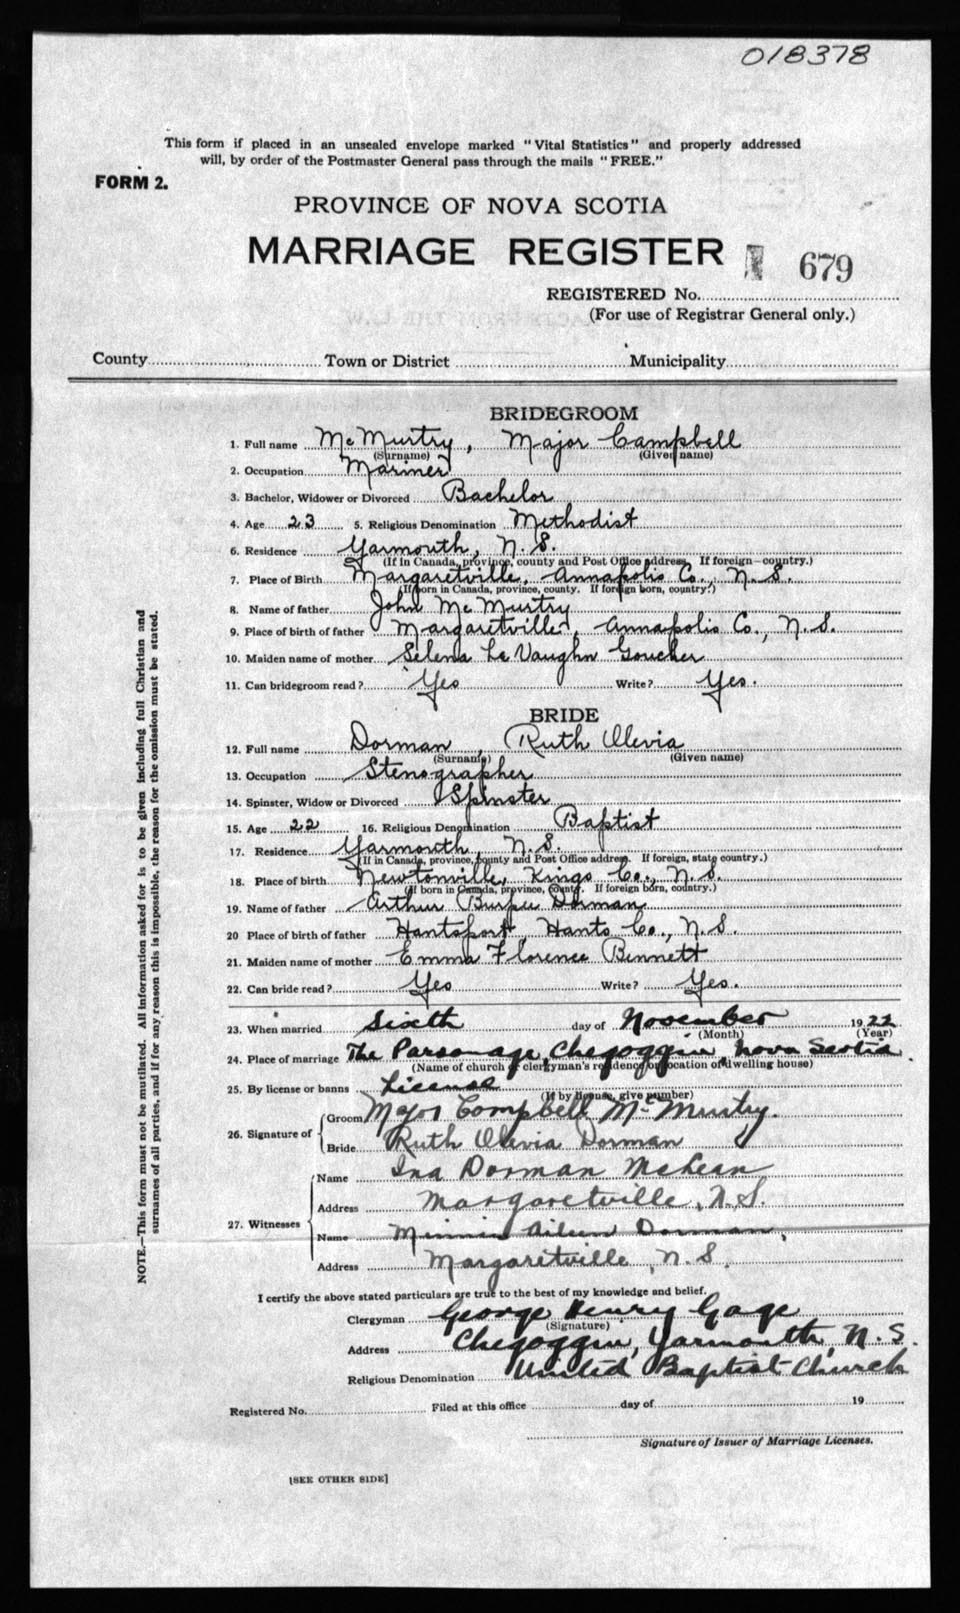 018378
This form if placed in an unsealed envelope marked "Vital Statistics" and properly addressed
will, by order of the Postmaster General pass through the mails "FREE."
FORM 2.
PROVINCE OF NOVA SCOTIA
MARRIAGE REGISTER
679
REGISTERED No.
(For use of Registrar General only.)
County Town or District Municipality
BRIDEGROOM
1. Full name McMurtry, Major Campbell
(Surname) (Given name)
2. Occupation Mariner
3. Bachelor, Widower or Divorced Bachelor
4. Age 23 5. Religious Denomination Methodist
6. Residence Yarmouth, N.S.
(If in Canada, province, county and Post Office address. If foreign—country.)
7. Place of Birth Margaretville, Annapolis Co., N.S.
(If born in Canada, province, county. If foreign born, country.)
8. Name of father John McMurtry
9. Place of birth of father Margaretville, Annapolis Co., N.S.
10. Maiden name of mother Selena Le Vaughn Goucher
11. Can bridegroom read? Yes Write? Yes.
BRIDE
12. Full name Dorman, Ruth Olevia
(Surname) (Given name)
13. Occupation Stenographer
14. Spinster, Widow or Divorced Spinster
15. Age 22 16. Religious Denomination Baptist
17. Residence Yarmouth, N.S.
(If in Canada, province, county and Post Office address. If foreign, state country.)
18. Place of birth Newtonville, Kings Co., N.S.
(If born in Canada, province, county. If foreign born, country.)
19. Name of father Arthur Burpee Dorman
20 Place of birth of father Hantsport, Hants Co., N.S.
21. Maiden name of mother Emma Florence Bennett
22. Can bride read? Yes Write? Yes.
23. When married Sixth day of November 1922
(Month) (Year)
24. Place of marriage The Parsonage, Chegoggin, Nova Scotia.
(Name of church or clergyman's residence or location of dwelling house)
25. By license or banns License
(If by license, give number)
26. Signature of Groom Major Campbell McMurtry.
Bride Ruth Olevia Dorman
27. Witnesses Name Ina Dorman McLean
Address Margaretville, N.S.
Name Minnie Aileen Dorman,
Address Margaretville, N.S.
I certify the above stated particulars are true to the best of my knowledge and belief.
Clergyman George Henry Gage
(Signature)
Address Chegoggin, Yarmouth, N.S.
Religious Denomination United Baptist Church
Registered No. Filed at this office day of 19
Signature of Issuer of Marriage Licenses.
[SEE OTHER SIDE]
NOTE.—This form must not be mutilated. All information asked for is to be given including full Christian and
surnames of all parties, and if for any reason this is impossible, the reason for the omission must be stated.